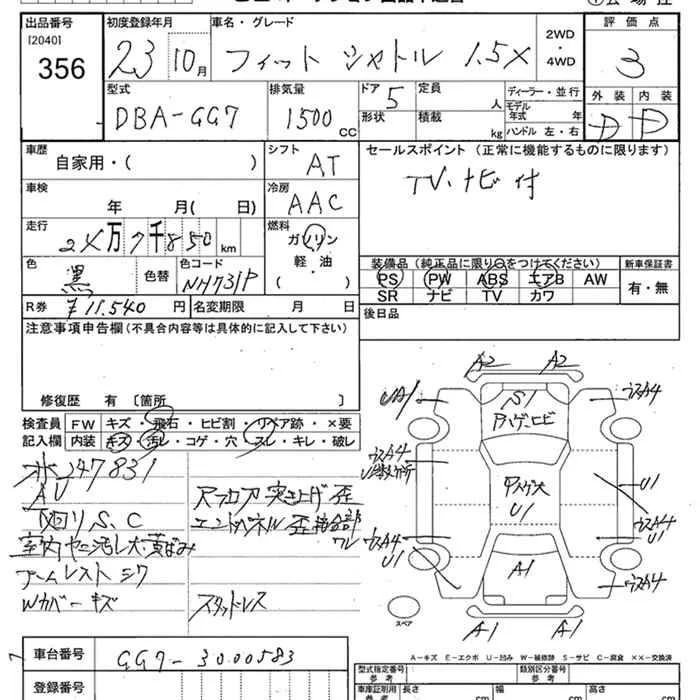 出品番号 初度登録年月 車名・グレード 2WD ・ 4WD 評価点
[2040]
356 23 10月 フィット シャトル 1.5X 3
型式 排気量 ドア 5 定員 人 ディーラー・並行 外装 内装
DBA-GG7 1500cc 形状 積載 kg モデル年式 年 ハンドル 左・右 D D
車歴 シフト セールスポイント (正常に機能するものに限ります)
自家用・( ) AT TV.ナビ付
車検 年 月( 日) 冷房 AAC
走行 24万7千850km 燃料 ガソリン
軽・油
( )
色 黒 色替 色コード NH731P
装備品(純正品に限り○をつけてください) 新車保証書
PS PW ABS エアB AW 有・無
SR ナビ TV カワ
R券 ¥11.540円 名変期限 月 日 後日品
注意事項申告欄(不具合内容等は具体的に記入して下さい)
修復歴 有 〔箇所 〕
検査員記入欄 FW キズ・飛石・ヒビ割・リペア跡・×要
内装 キズ・汚レ・コゲ・穴・スレ・キレ・破レ
247831
AV フロア突き上げ歪
下回りS、C エンドパネル歪接合部ワレ
室内ヤニ汚レ大黄ばみ
アームレストシワ
Wカバーキズ スタッドレス
A2 A2
UA1 S1 ウスA4
ハゲ.ヒビ
ウスA4 U1
U1
ウスA4 U1 ウスA4 U1
A1 ウスA4
スペア A1 A1
A-キズ E-エクボ U-凹み W-補修跡 S-サビ C-腐食 ××-交換済
車台番号 GG7-3000583 型式指定番号 参考 類別区分番号 参考
登録番号 車庫証明用 参考 長さ cm 幅 cm 高さ cm